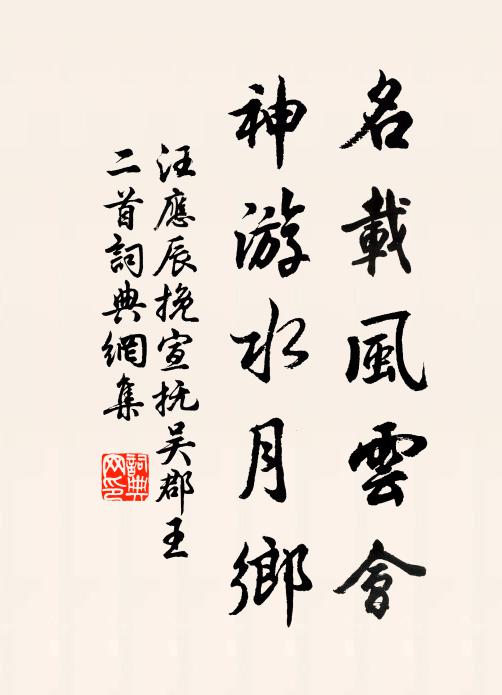 名載風雲會
神游水月鄉
汪應辰挽宣抚吴郡王
二首詞典網集
詞典網印